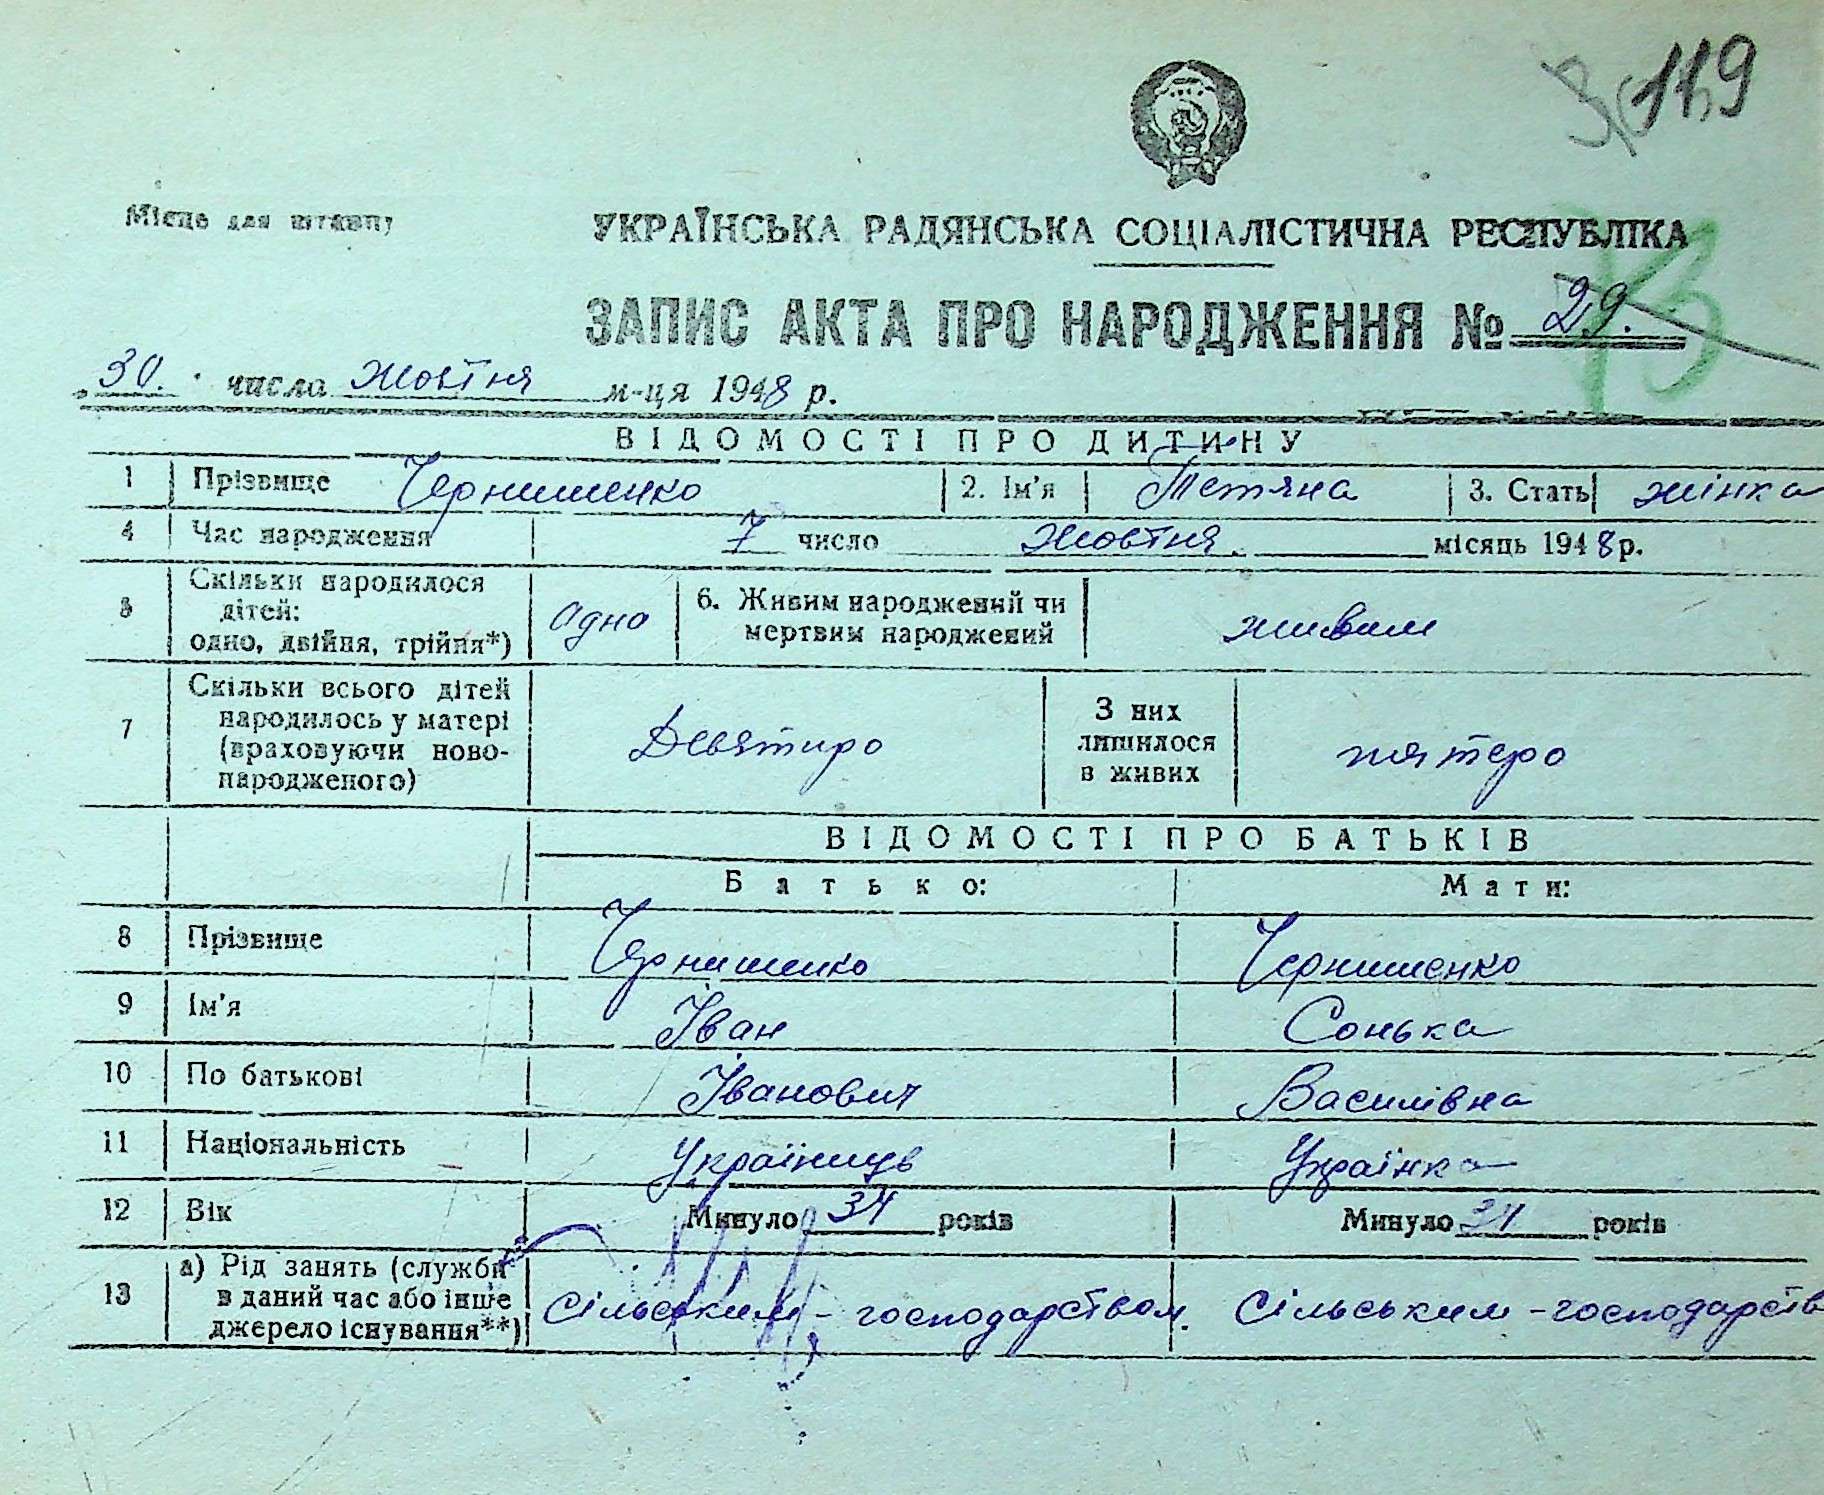 119
Місце для штампу
УКРАЇНСЬКА РАДЯНСЬКА СОЦІАЛІСТИЧНА РЕСПУБЛІКА
ЗАПИС АКТА ПРО НАРОДЖЕННЯ № 29.
30. числа жовтня м-ця 1948 р.
ВІДОМОСТІ ПРО ДИТИНУ
1 Прізвище Чернишенко 2. Ім'я Тетяна 3. Стать жінка
4 Час народження 7 число жовтня. місяць 1948 р.
5 Скільки народилося дітей: одно, двійня, трійня*) одно 6. Живим народжений чи мертвим народжений живим
7 Скільки всього дітей народилось у матері (враховуючи новонародженого) Девятиро З них лишилося в живих пятеро
ВІДОМОСТІ ПРО БАТЬКІВ
Батько: Мати:
8 Прізвище Чернишенко Чернишенко
9 Ім'я Іван Сонька
10 По батькові Іванович Василівна
11 Національність Українць Українка
12 Вік Минуло 34 років Минуло 34 років
13 а) Рід занять (служби в даний час або інше джерело існування**) Сільським - господарством. Сільським - господарств